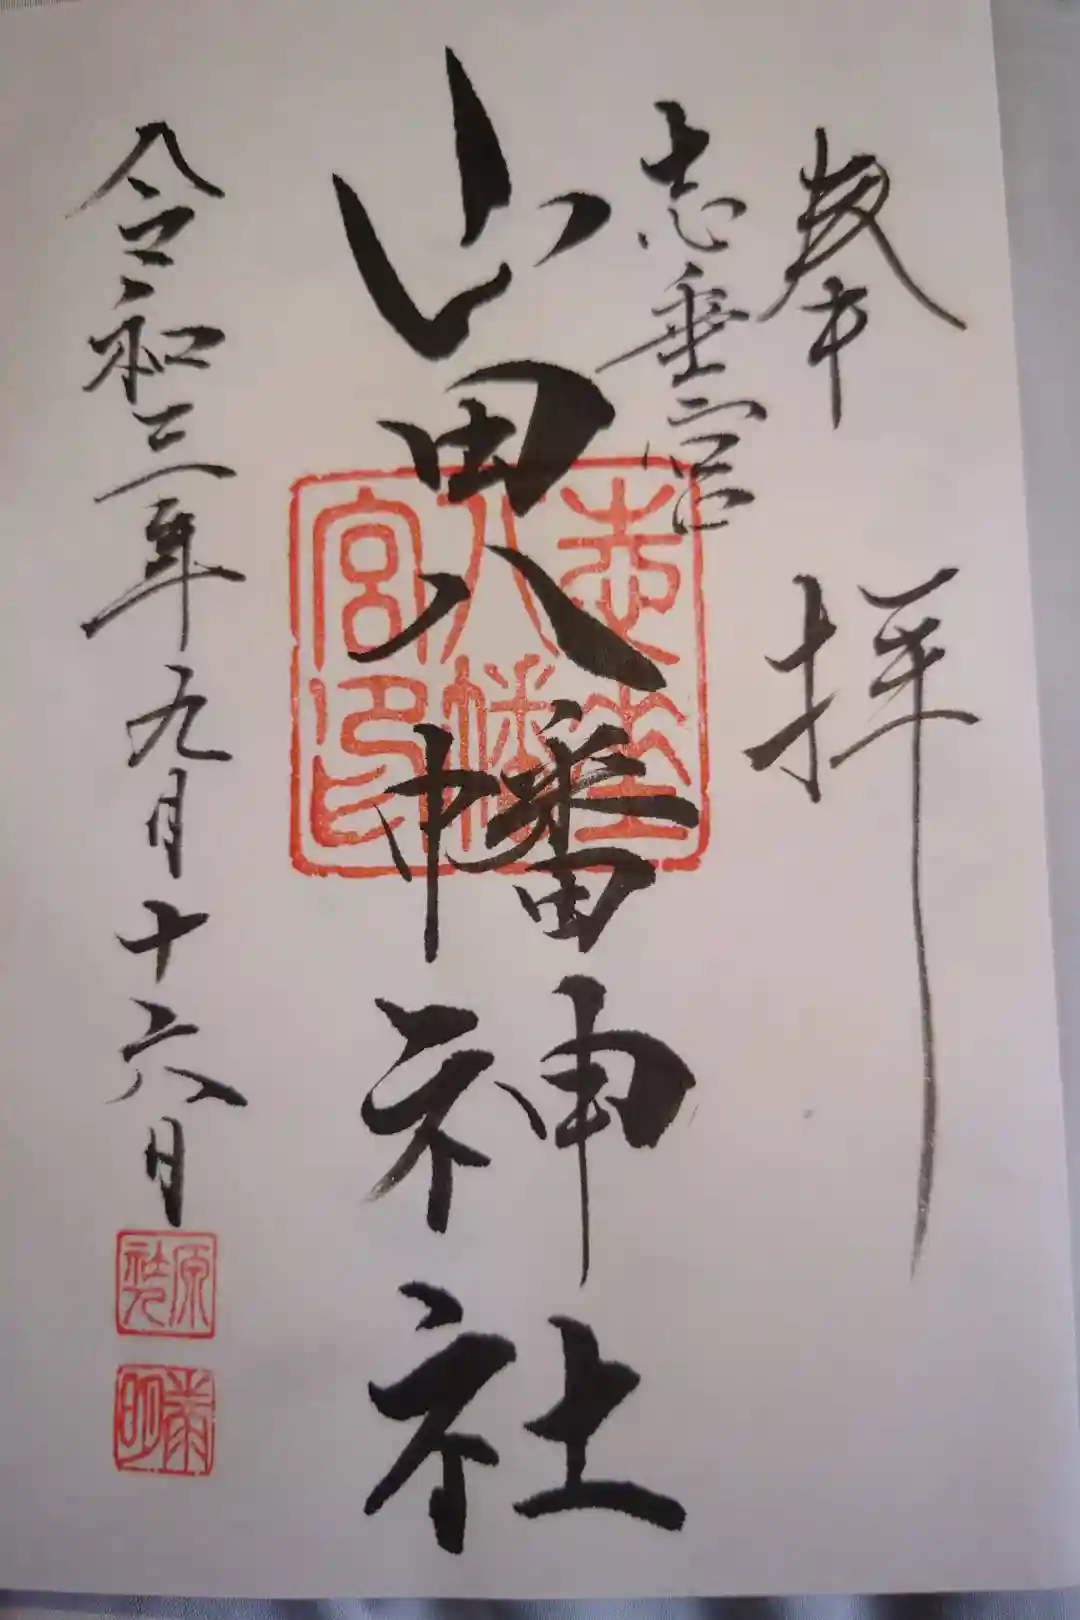 奉拝
志垂宮
山田八幡神社
志垂
八幡
宮印
令和三年九月十六日